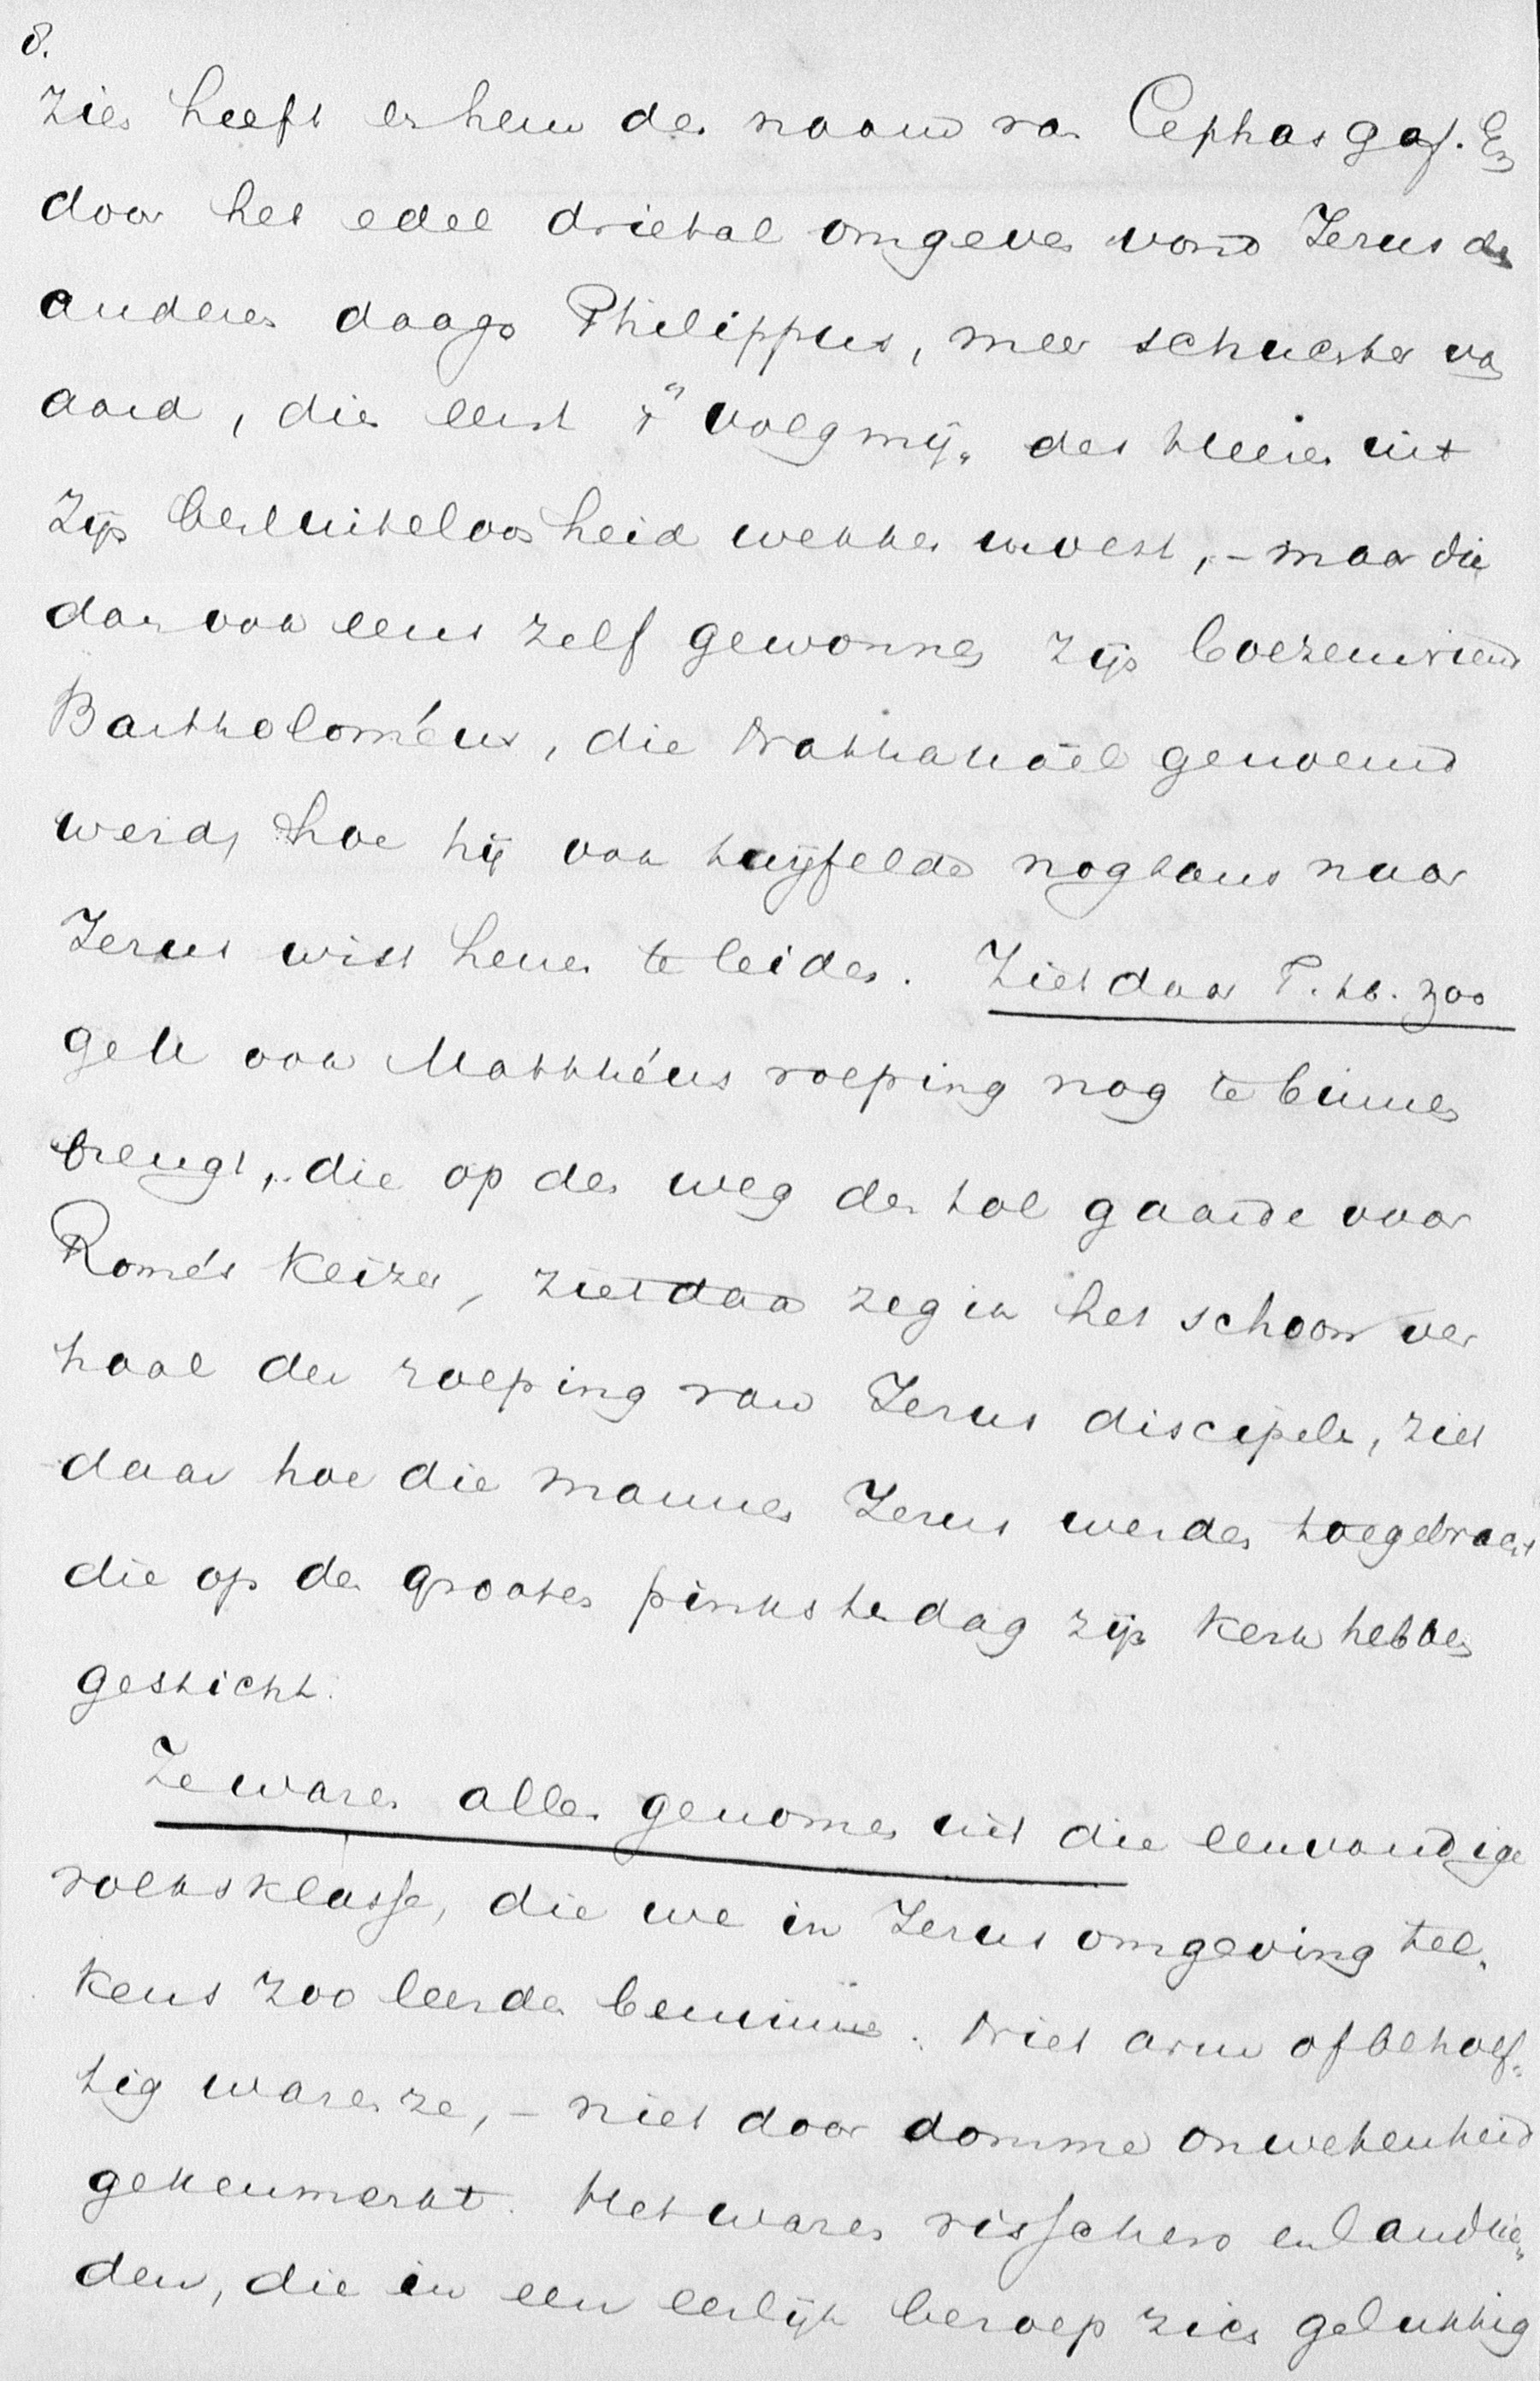 8.
Zien heeft er hem den naam van Cephas gaf. En
door het edel drietal omgeven vond Jezus des
anderen daags Philippus, meer schuchter van
aard, die eerst 't "volg mij" des Heeren uit
zijn besluiteloosheid wekken moest, - maar die
dan ook eens zelf gewonnen zijn boezemvriend
Bartholoméus, die Nathanaël genoemd
werd, hoe hij ook twijfelde nogtans naar
Jezus wist henen te leiden. Ziet daar T. zoo
gelk ook Matthéus roeping nog te binnen
brengt, die op den weg den tol gaarde voor
Rome's Keizer, ziet daar zeg ik het schoon ver
haal der roeping van Jezus discipelen, ziet
daar hoe die mannen Jezus werden toegebracht
die op den grooten pinksterdag zijn kerk hebben
gesticht.
Ze waren allen genomen uit die eenvoudige
volksklasse, die we in Jezus omgeving tel-
kens zoo leerden beminnen. Niet arm of behoef-
tig waren ze, - niet door domme onwetenheid
gekenmerkt. Het waren visschers en landlie-
den, die in een eerlijk beroep zich gelukkig